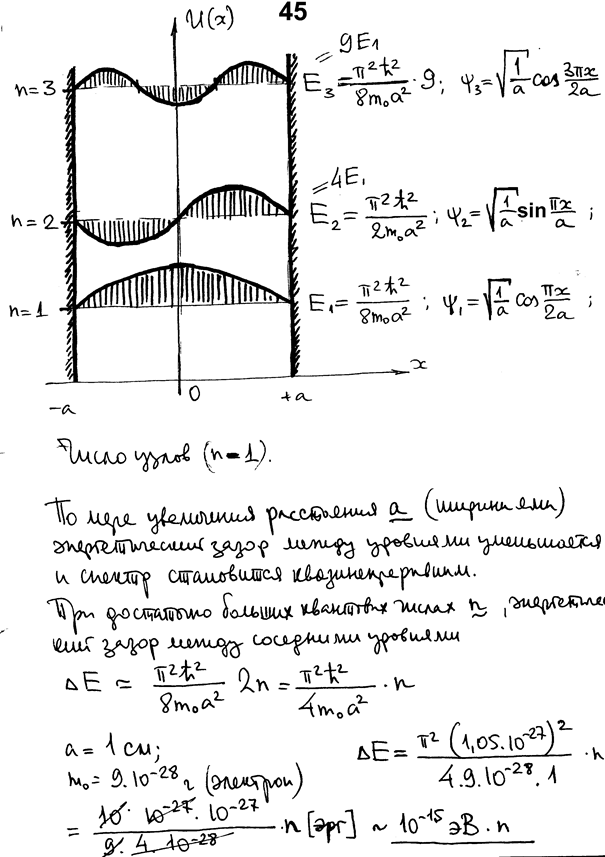 45
U(x)
n=3
= 9E₁
E₃ = π²ħ²/8m₀a² · 9; ψ₃ = √(1/a) cos 3πx/2a
n=2
= 4E₁
E₂ = π²ħ²/2m₀a²; ψ₂ = √(1/a) sin πx/a ;
n=1
E₁ = π²ħ²/8m₀a² ; ψ₁ = √(1/a) cos πx/2a ;
x
-a 0 +a
Число узлов (n-1).
По мере увеличения расстояния a (ширины ямы)
энергетический зазор между уровнями уменьшается
и спектр становится квазинепрерывным.
При достаточно больших квантовых числах n, энергетичес
кий зазор между соседними уровнями
ΔE ≃ π²ħ²/8m₀a² 2n = π²ħ²/4m₀a² · n
a = 1 см;
ΔE = π² (1,05·10⁻²⁷)²/4·9·10⁻²⁸·1 · n
m₀ = 9·10⁻²⁸ г (электрон)
= 10· 10⁻²⁷· 10⁻²⁷/9· 4· 10⁻²⁸ · n [эрг] ~ 10⁻¹⁵ эВ · n